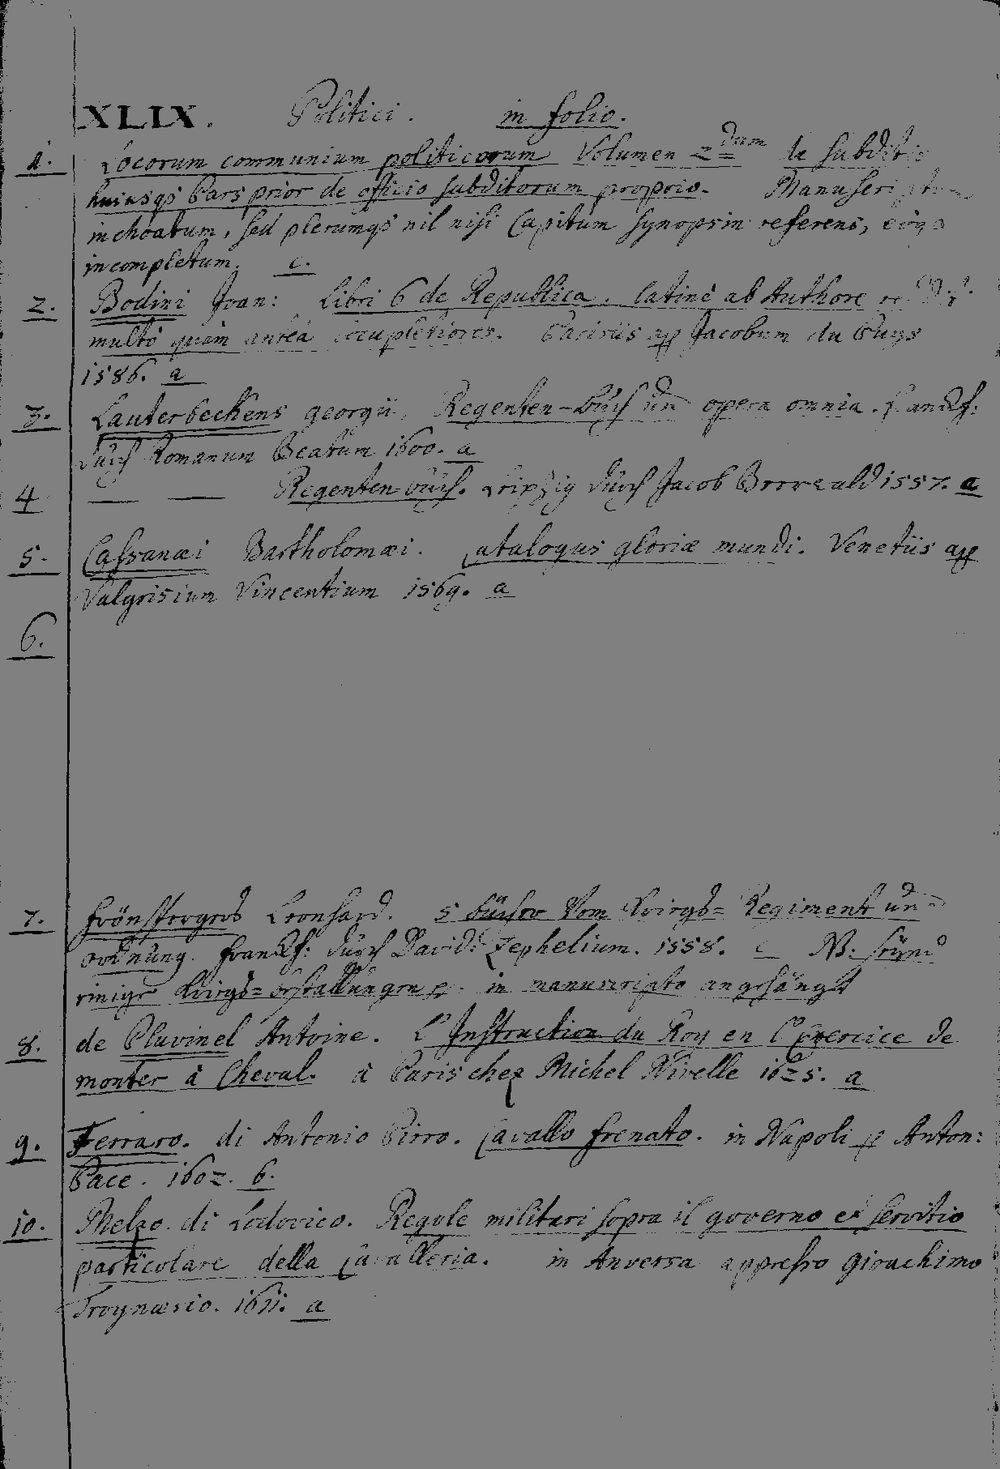 XLIX. Politici. in folio.
1. Locorum communium politicorum Volumen 2dum de subditis
huiusqs Pars prior de officio subditorum proprio. Manuscriptum
inchoatum, sed plerumqs nil nisi Capitum synopsin referens,
incompletum. c.
2. Bodini Joan: Libri 6 de Republica. latinè ab Authore
multò quàm anteà locupletiores. Parisiis ap Jacobum du Puys
1586. a
3. Lauterbeckens georgii. Regenten-buch und opera omnia. Franckf:
durch Romanum Beatum 1600. a
4 — — Regenten-buch. Leipzig durch Jacob Beerwald 1557. a
5. Cassanæi Bartholomæi. Catalogus gloriæ mundi. Venetiis ap
Valgrisium Vincentium 1569. a
6.
7. Frönspergers Leonhard. 5 bücher Vom Kriegs= Regiment und
ordnung. Franckf: durch David: Zephelium. 1558. c NB. seynd
einige Kriegs=bestallungen in manuscripto angehängt
8. de Pluvinel Antoine. L'Instruction du Roy en l'Exercice de
monter à Cheval. à Paris chez Michel Nivelle 1625. a
9. Ferraro. di Antonio Pirro. Cavallo frenato. in Napoli p Anton:
Pace. 1602. 6.
10. Melzo. di Lodovico. Regole militari sopra il governo et servitio
particolare della Cavalleria. in Anversa appresso gioachimo
Troynæsio. 1611. a